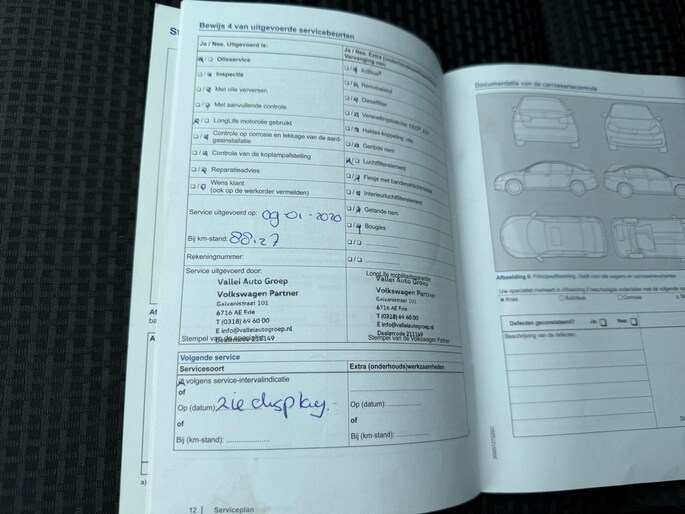 Bewijs 4 van uitgevoerde servicebeurten
Ja / Nee. Uitgevoerd is:
Olieservice
Inspectie
Met olie verversen
Met aanvullende controle
LongLife motorolie gebruikt
Controle op corrosie en lekkage van de aard-
gasinstallatie
Controle van de koplampafstelling
Reparatieadvies
Wens klant
(ook op de werkorder vermelden)
Service uitgevoerd op: 09-01-2020
Bij km-stand:
Rekeningnummer:
Ja / Nee. Extra
Vervanging van:
AdBlue®
Remvloeistof
Dieselfilter
Haldex-koppeling, olie
Geribde riem
Luchtfilterelement
Interieurluchtfilterelement
Getande riem
Bougies
Service uitgevoerd door:
Vallei Auto Groep
Volkswagen Partner
Galvanistraat 101
6716 AE Ede
T (0318) 69 60 00
E info@valleiautogroep.nl
Dealercode 211149
Stempel van de specialist
LongLife mobiliteitsgarantie
Vallei Auto Groep
Volkswagen Partner
Galvanistraat 101
6716 AE Ede
T (0318) 69 60 00
E info@valleiautogroep.nl
Dealercode 211149
Stempel van de Volkswagen Partner
Volgende service
Servicesoort
volgens service-intervalindicatie
of
Op (datum): zie display.
of
Bij (km-stand):
Extra (onderhouds)werkzaamheden
Op (datum):
of
Bij (km-stand):
12 | Serviceplan
Documentatie van de carrosseriecontrole
Defecten geconstateerd? Ja: Nee:
Beschrijving van de defecten: